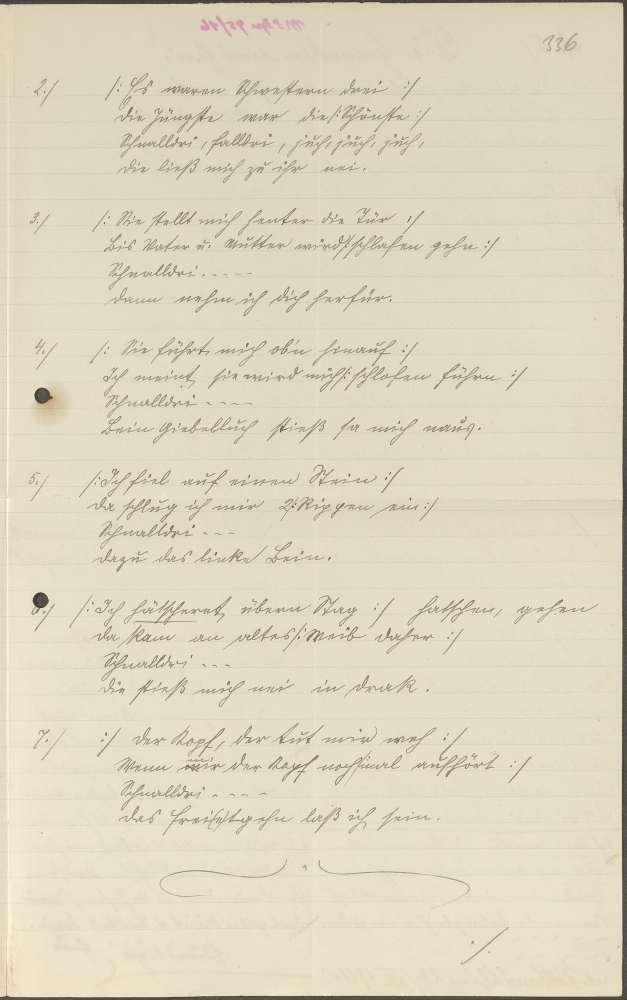 336
2./ /: Es waren Schwestern drei :/
die Jüngste war die/: Schönste :/
Schnalldri, falldri, juch, juch, juch,
die ließ mich zu ihr nei.
3./ /: Sie stellt mich henter die Tür :/
Bis Vater u. Mutter wird/: schlafen gehn :/
Schnalldri. - - - -
dann nehm ich dich herfür.
4./ /: Sie führt mich ob'n hinauf :/
Ich meint, sie wird mich/: schlofen führn :/
Schnalldri - - - -
Beim Giebelluch stieß sa mich naus.
5./ /: Ich fiel auf einen Stein :/
da schlug ich mir 2/: Rippen ein :/
Schnalldri - - -
dazu das linke Bein.
6./ /: Ich hatscheret übern Stag :/ hatschen, gehen
da kam an altes/: Weib daher :/
Schnalldri - - -
die stieß mich nei in drak.
7./ :/ der Kopf, der tut mir weh :/
Wenn mir der Kopf noch/:mal aufhört :/
Schnalldri - - - -
das frei(e)tgehn laß ich sein.
./.